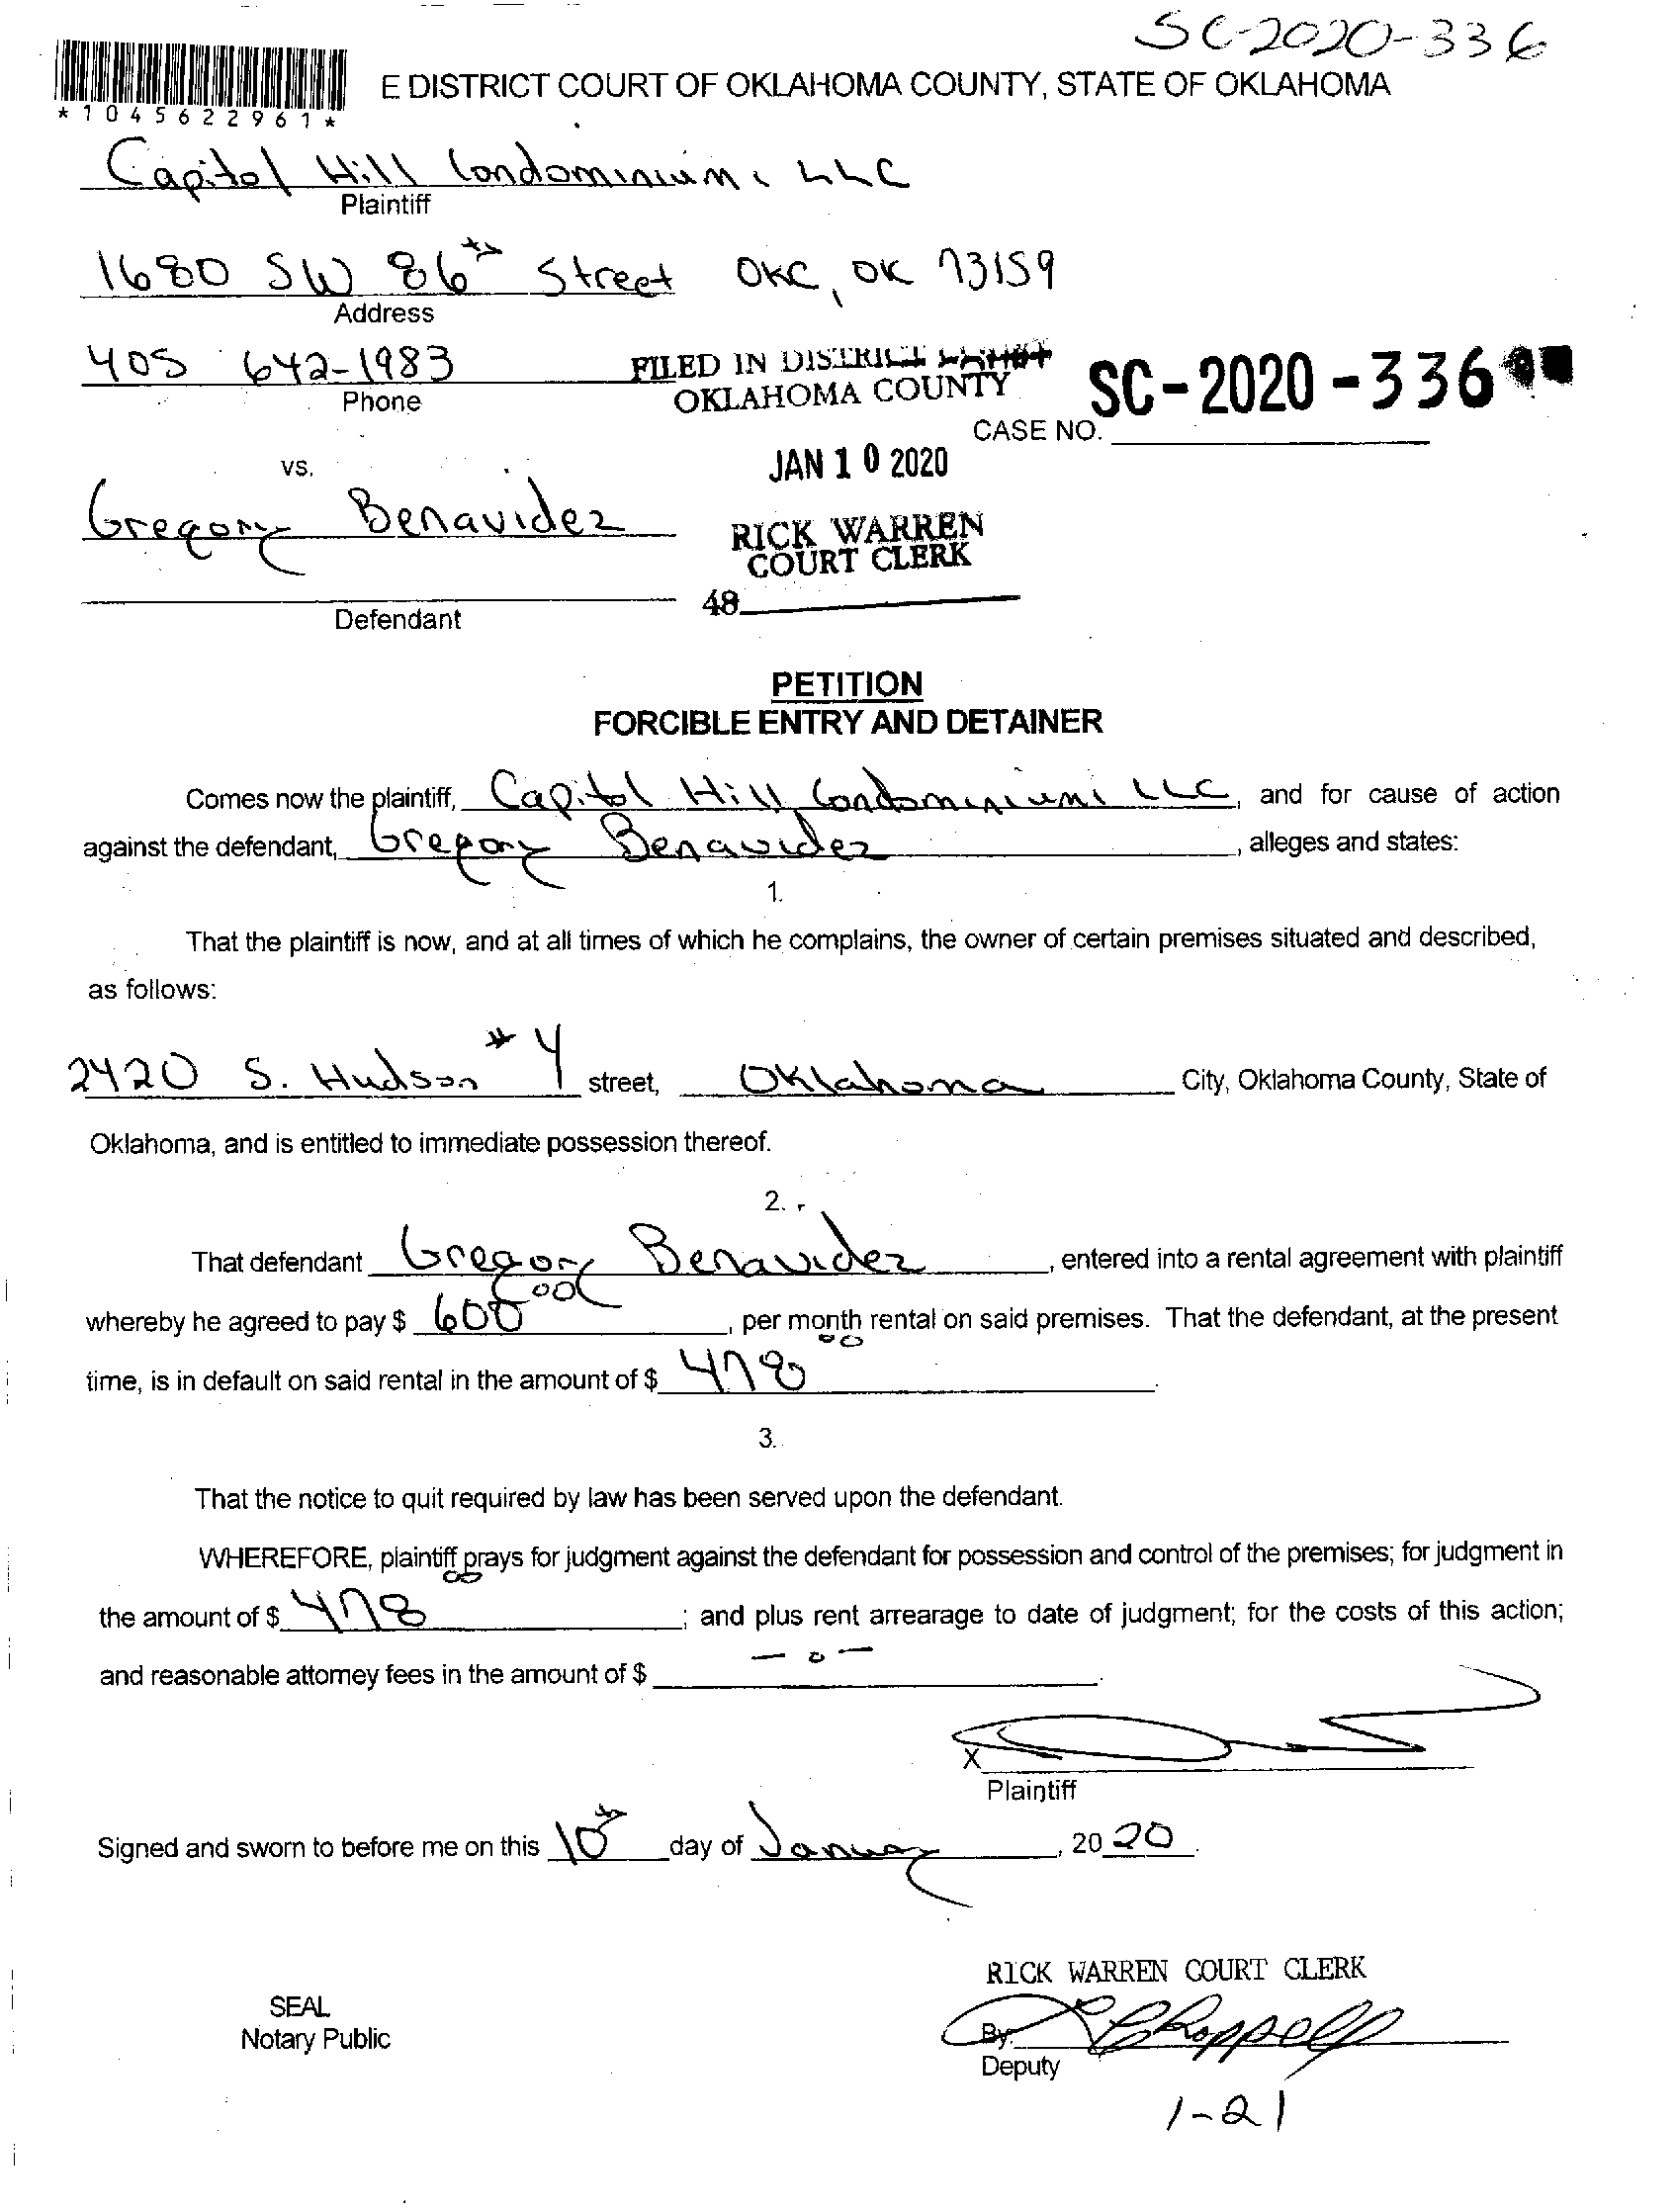 SC-2020-336
E DISTRICT COURT OF OKLAHOMA COUNTY, STATE OF OKLAHOMA
*1045622961*
Capitol Hill Condominiums LLC
Plaintiff
1680 SW 86th Street OKC, OK 73159
Address
405 642-1983
Phone
FILED IN DISTRICT COURT
OKLAHOMA COUNTY
SC-2020-336
CASE NO.
JAN 10 2020
vs.
Gregory Benavidez
RICK WARREN
COURT CLERK
48
Defendant
PETITION
FORCIBLE ENTRY AND DETAINER
Comes now the plaintiff, Capitol Hill Condominiums LLC, and for cause of action
against the defendant, Gregory Benavidez, alleges and states:
1.
That the plaintiff is now, and at all times of which he complains, the owner of certain premises situated and described,
as follows:
2420 S. Hudson #4 street, Oklahoma City, Oklahoma County, State of
Oklahoma, and is entitled to immediate possession thereof.
2.
That defendant Gregory Benavidez, entered into a rental agreement with plaintiff
whereby he agreed to pay $ 600 00, per month rental on said premises. That the defendant, at the present
time, is in default on said rental in the amount of $ 478 00.
3.
That the notice to quit required by law has been served upon the defendant.
WHEREFORE, plaintiff prays for judgment against the defendant for possession and control of the premises; for judgment in
the amount of $ 478 00; and plus rent arrearage to date of judgment; for the costs of this action;
and reasonable attorney fees in the amount of $ -0-.
X
Plaintiff
Signed and sworn to before me on this 10th day of January, 2020.
RICK WARREN COURT CLERK
SEAL
Notary Public
By:
Deputy
1-21